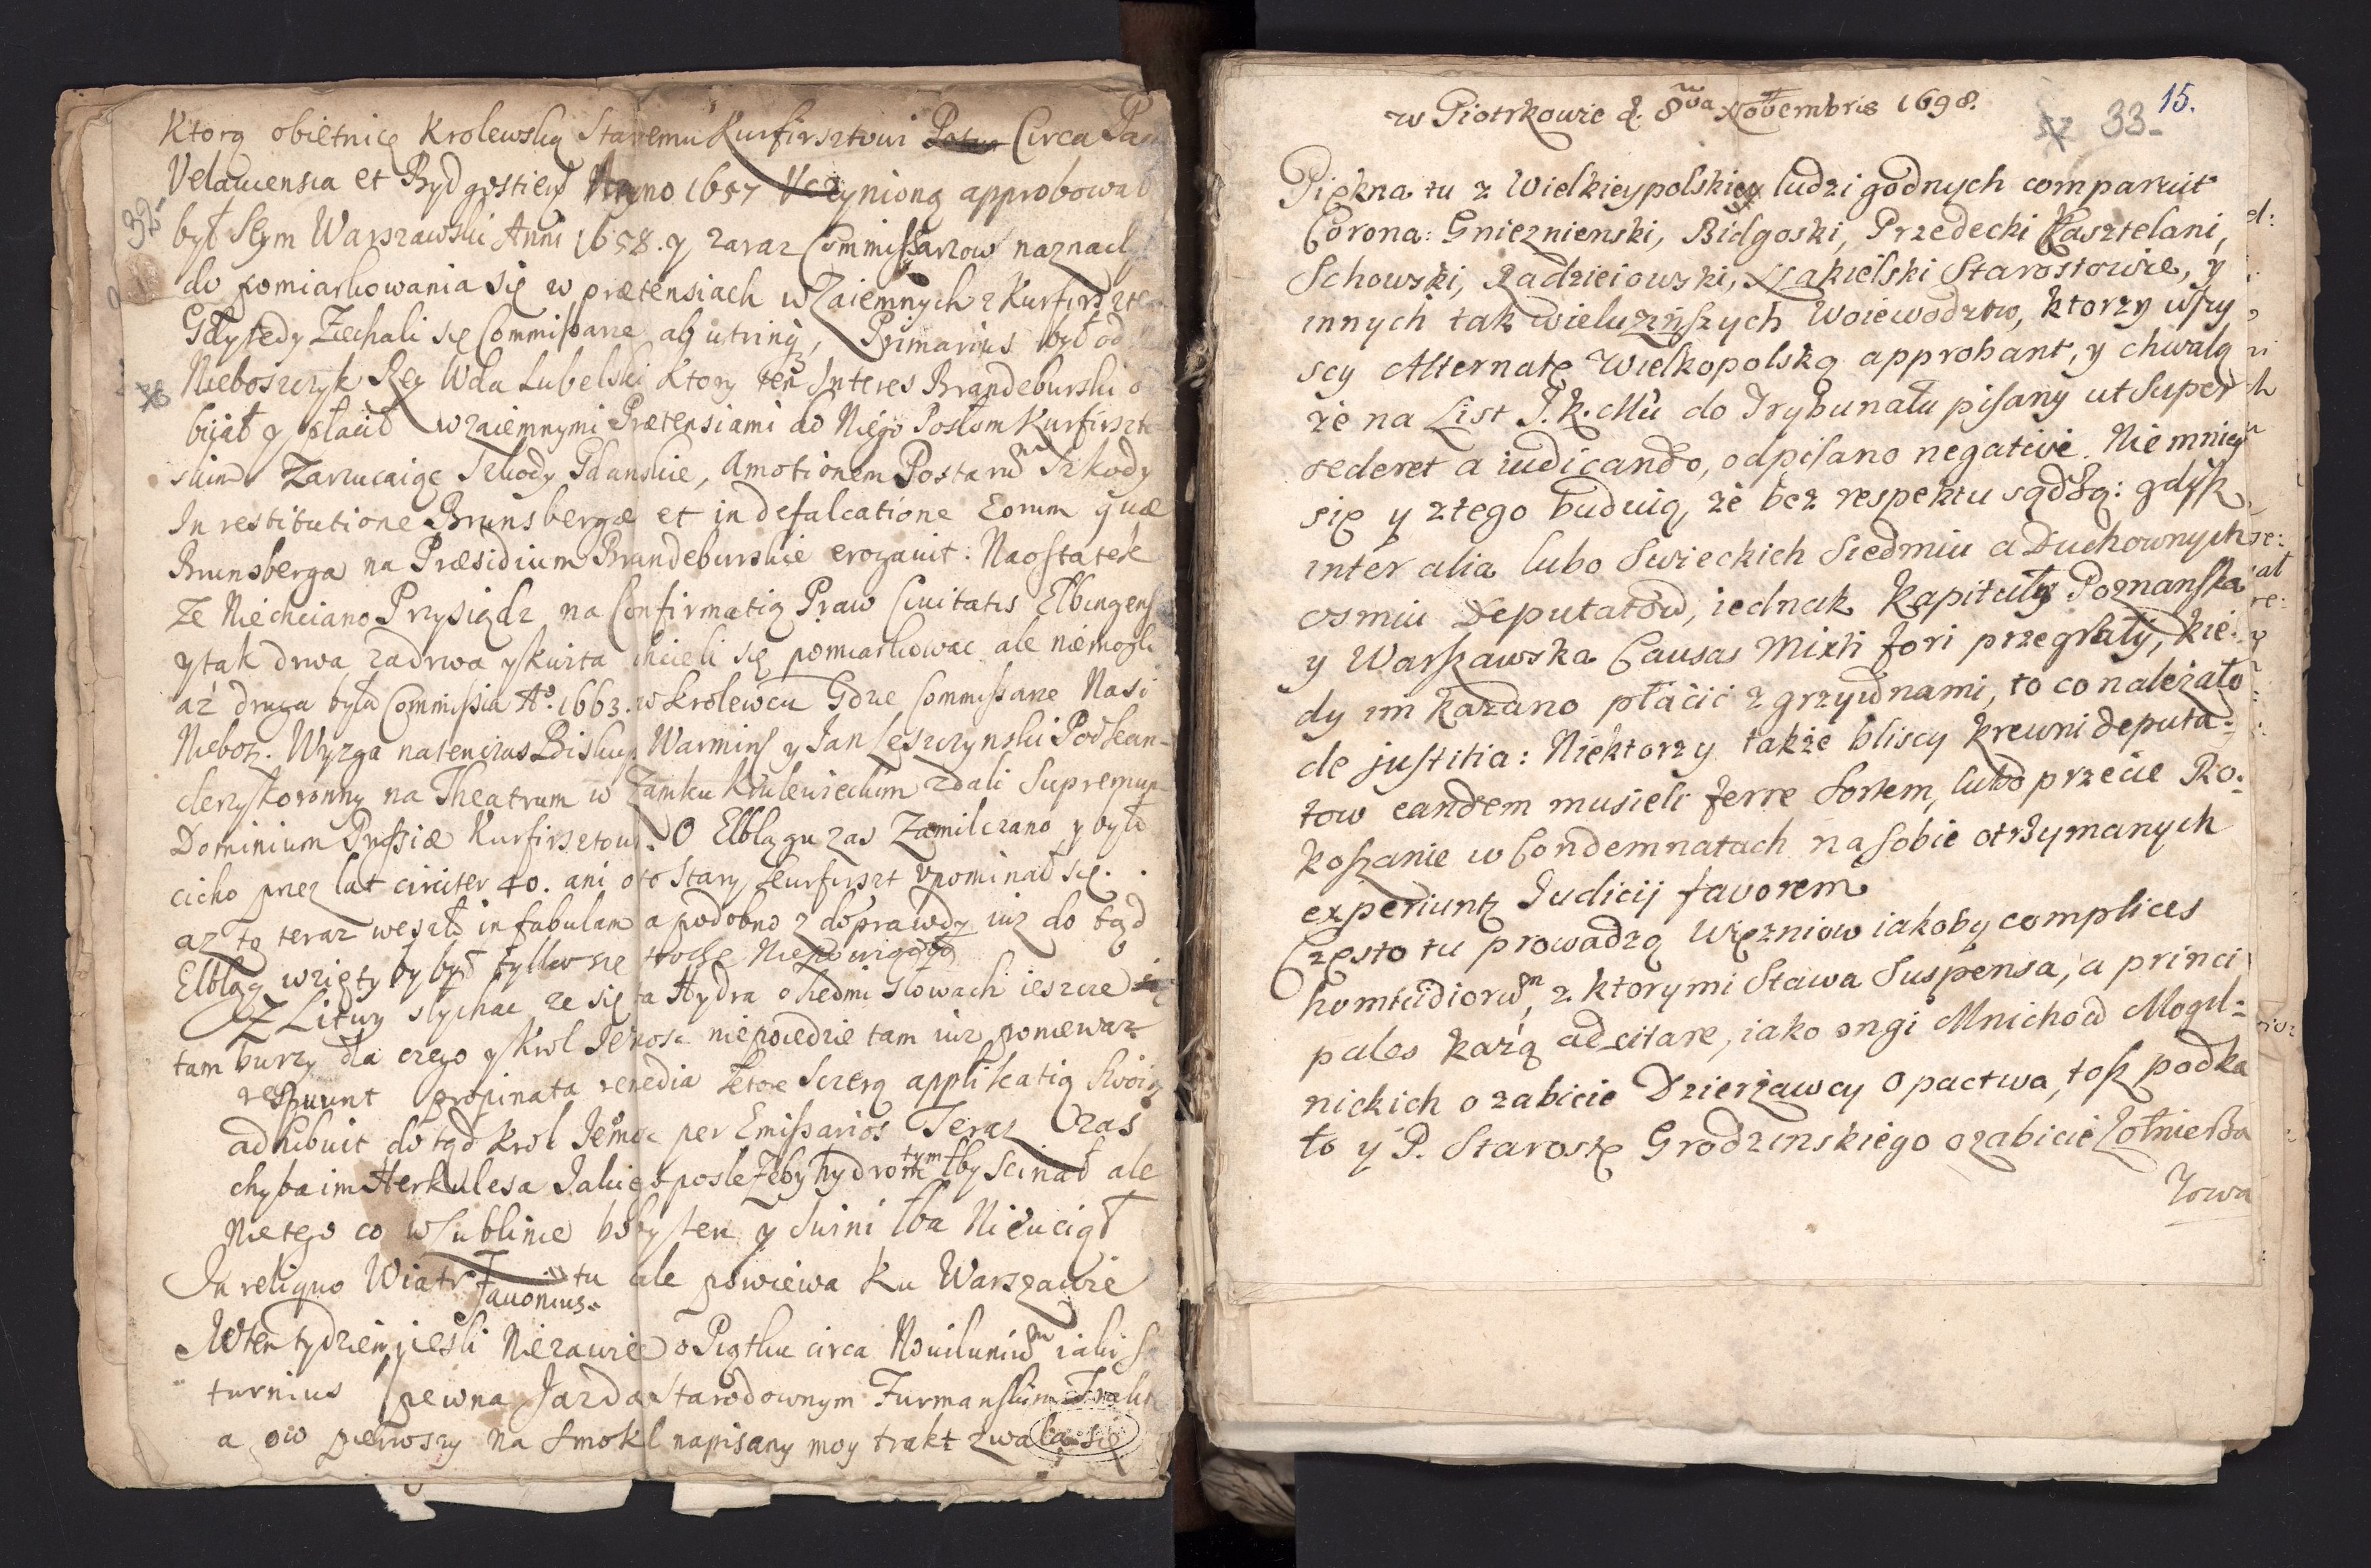 Ktorą obietnicę Krolewską Staremu Kurfirsztowi Circa
Velauiensia et Bydgostien Anno 1657 Uczynioną approbował
był Seym Warszawski Anni 1658. y zaraz Commissarzow
do pomiarkowania się w prætensiach wzaiemnych z
Gdy tedy Ziechali się Commissarze ab utrinq, Primarius był od
Nieboszczyk Rey Wda Lubelski Ktory ten Interes Brandeburski
biiał y płacił wzaiemnymi Prætensiami od Niego Posłom
Zarzucaiąc Szkody Gdanskie, Amotionem Szkody
In restitutione Brunsbergæ et in defalcatione Eorum quæ
Brunsberga na Præsidium Brandeburskie erogauit: Naostatek
Ze Niechciano Przysiądz na Confirmatią Praw Ciuitatis
y tak drwa zadrwa y kwita chcieli się pomiarkowac ale niemogli
aż druga była Commissia Aº. 1663. w Krolewcu Gdzie Commissarze Nasi
Nieboz. Wyzga natenczas Biskup Warmins y Jan Leszczynski Podkan-
clerzy Koronny na Theatrum w Zamku Krulewieckim zdali Supremum
Dominium Prussiæ Kurfirsztowi. O Elblągu zas Zamilczano y było
cicho przez lat circiter 40. ani oto Stary Kurfirszt vpominał się.
az to teraz weszło in fabulam a podobno z do prawdy iuz do tąd
Elbląg wzięty by był tylko się troche
Z Litwy slychac ze się ta Hydra o siedmi Głowach ieszcze
tam burzy dla czego y Krol Jemosc niepoiedzie tam iuz poniewaz
respuunt propinata remedia Ktore Szczerą applikatią Swoią
adhibuit do tąd Krol Jemosc per Emissarios Teraz Czas
chyba im Herkulesa Jakiego posle Zeby hydrom tym łby Scinał ale
Nietego co w Lublinie bo by ten y Swini łba Nieuciął
In reliquo Wiatr Fauonius tu ale powiewa Ku Warszawie
Wten tydzien jesli Niezawie o Piątku circa Nouilunium iaki
turnius pewna Jazda Starodownym Furmanskim
a ow pierwszy na Smokl napisany moy trakt zwala się
32-
33- 15.
w Piotrkowie d. 8va Novembris 1698.
Piękna tu z Wielkieypolskiey ludzi godnych comparuit
Corona: Gnieznienski, Bidgoski, Przedecki Kasztelani,
Schowski, Radzieiowski, Nakielski Starostowie, y
innych tak wielu z inszych Woiewodztw, ktorzy wszy
scy Alternatę Wielkopolską approbant, y chwalą
że na List J. K. Mci do Trybunału pisany ut Super
sederet a iudicando, odpisano negative. Nie mniey
się y z tego buduią, że bez respektu sądzą: gdysz
inter alia lubo Swieckich Siedmiu a Duchownych
osmiu Deputatow, iednak Kapituły Poznanska
y Warszawska Causas Mixti fori przegrały, kie-
dy im kazano płacic z grzywnami, to co należało
de justitia: Niektorzy także bliscy krewni deputa-
tow eandem musieli ferre Sortem, lubo przecie Ro-
koszanie w Condemnatach na sobie otrzymanych
experiuntz Judicij favorem
Często tu prowadzą Więzniow iakoby complices
homicidiorum, z ktorymi Stawa Suspensa, a princi
pales każą adcitare, iako ongi Mnichow Mogil-
nickich o zabicie Dzierżawcy Opactwa, tosz podka
ło y P. Starostę Grodzinskiego o zabicie Żołnierza
Towa